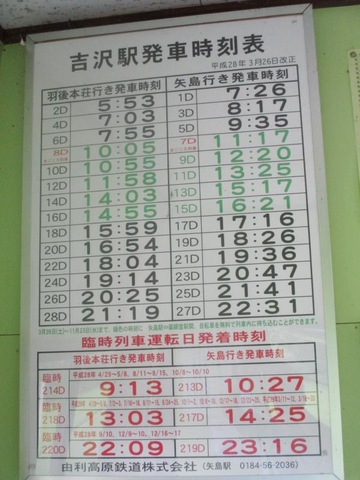 吉沢駅発車時刻表
平成28年3月26日改正
羽後本荘行き発車時刻 矢島行き発車時刻
2D 5:53 1D 7:26
4D 7:03 3D 8:17
6D 7:55 5D 9:35
8D 10:05 7D 11:17
10D 10:55 9D 12:20
12D 11:58 11D 13:25
14D 14:03 13D 15:17
16D 14:55 15D 16:21
18D 15:59 17D 17:16
20D 16:54 19D 18:26
22D 18:04 21D 19:36
24D 19:11 23D 20:47
26D 20:25 25D 21:41
28D 21:19 27D 22:31
臨時列車運転日発着時刻
羽後本荘行き発車時刻 矢島行き発車時刻
平成28年 4/29~5/8、8/11~8/15、10/8~10/10
臨時 214D 9:13 213D 10:27
臨時 218D 13:03 217D 14:25
平成28年 9/10、12/9~10、12/16~17
臨時 220D 22:09 219D 23:16
由利高原鉄道株式会社 (矢島駅 0184-56-2036)